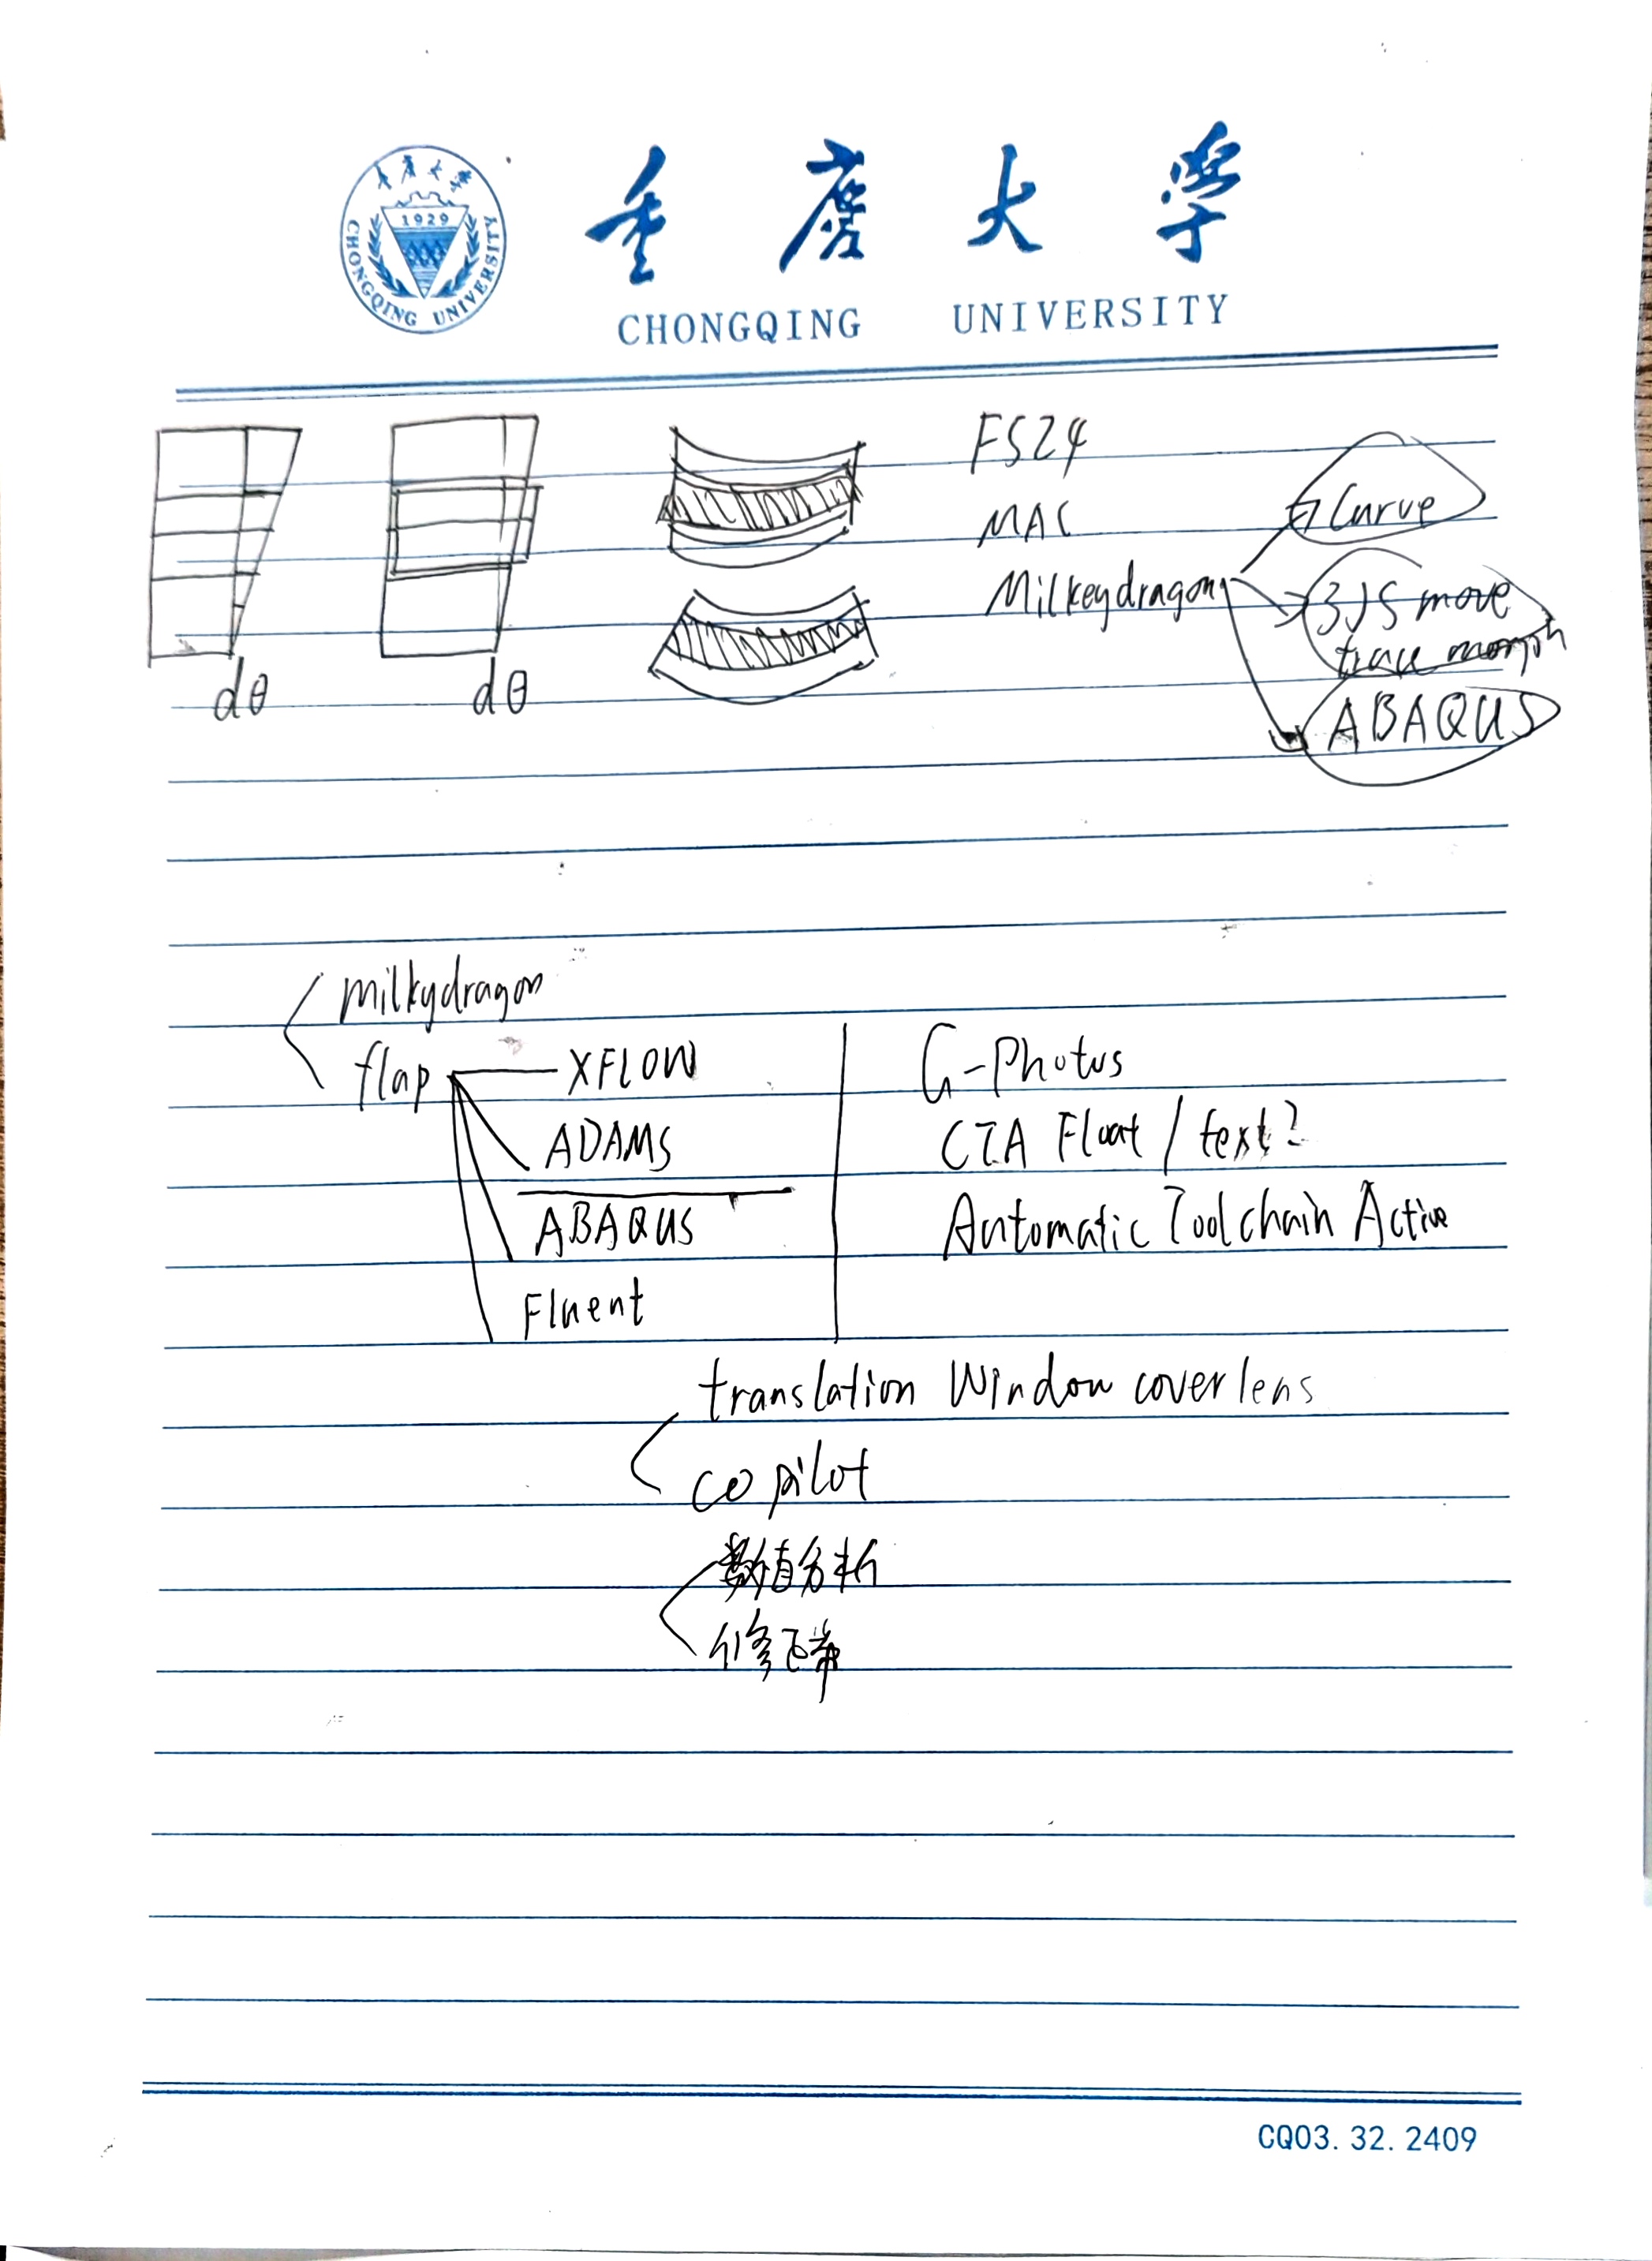 重庆大学
1929
CHONGQING UNIVERSITY
重庆大学
CHONGQING UNIVERSITY
dθ
dθ
FS24
MAC
Milkeydragon
Curve
3JS move
trace morph
ABAQUS
milkydragon
flap
XFLOW
ADAMS
ABAQUS
Fluent
G-Photos
CTA Float / text?
Automatic Toolchain Active
translation Window cover lens
copilot
数值分析
修
CQ03.32.2409